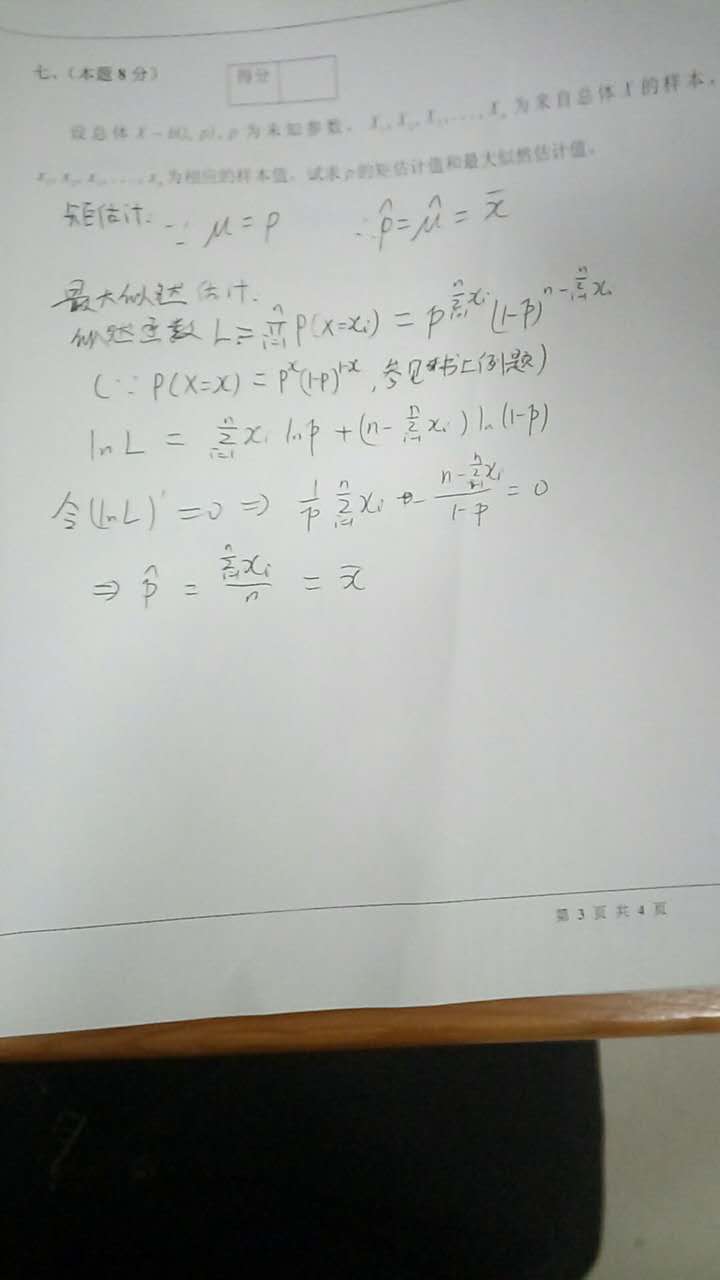 七、(本题8分)
得分
设总体 X~b(1, p), p 为未知参数, X₁, X₂, X₃, …, Xₙ 为来自总体 X 的样本,
x₁, x₂, x₃, …, xₙ 为相应的样本值, 试求 p 的矩估计值和最大似然估计值。
矩估计. ∵ μ = p ∴ p̂ = μ̂ = x̄
最大似然估计.
似然函数 L = ∏ᵢ₌₁ⁿ P(X=xᵢ) = p^{∑ᵢ₌₁ⁿ xᵢ} (1-p)^{n-∑ᵢ₌₁ⁿ xᵢ}
(∵ P(X=x) = pˣ(1-p)¹⁻ˣ, 参见书上例题)
ln L = ∑ᵢ₌₁ⁿ xᵢ ln p + (n-∑ᵢ₌₁ⁿ xᵢ) ln (1-p)
令 (ln L)' = 0 ⇒ 1/p ∑ᵢ₌₁ⁿ xᵢ - (n-∑ᵢ₌₁ⁿ xᵢ)/(1-p) = 0
⇒ p̂ = (∑ᵢ₌₁ⁿ xᵢ)/n = x̄
第 3 页 共 4 页